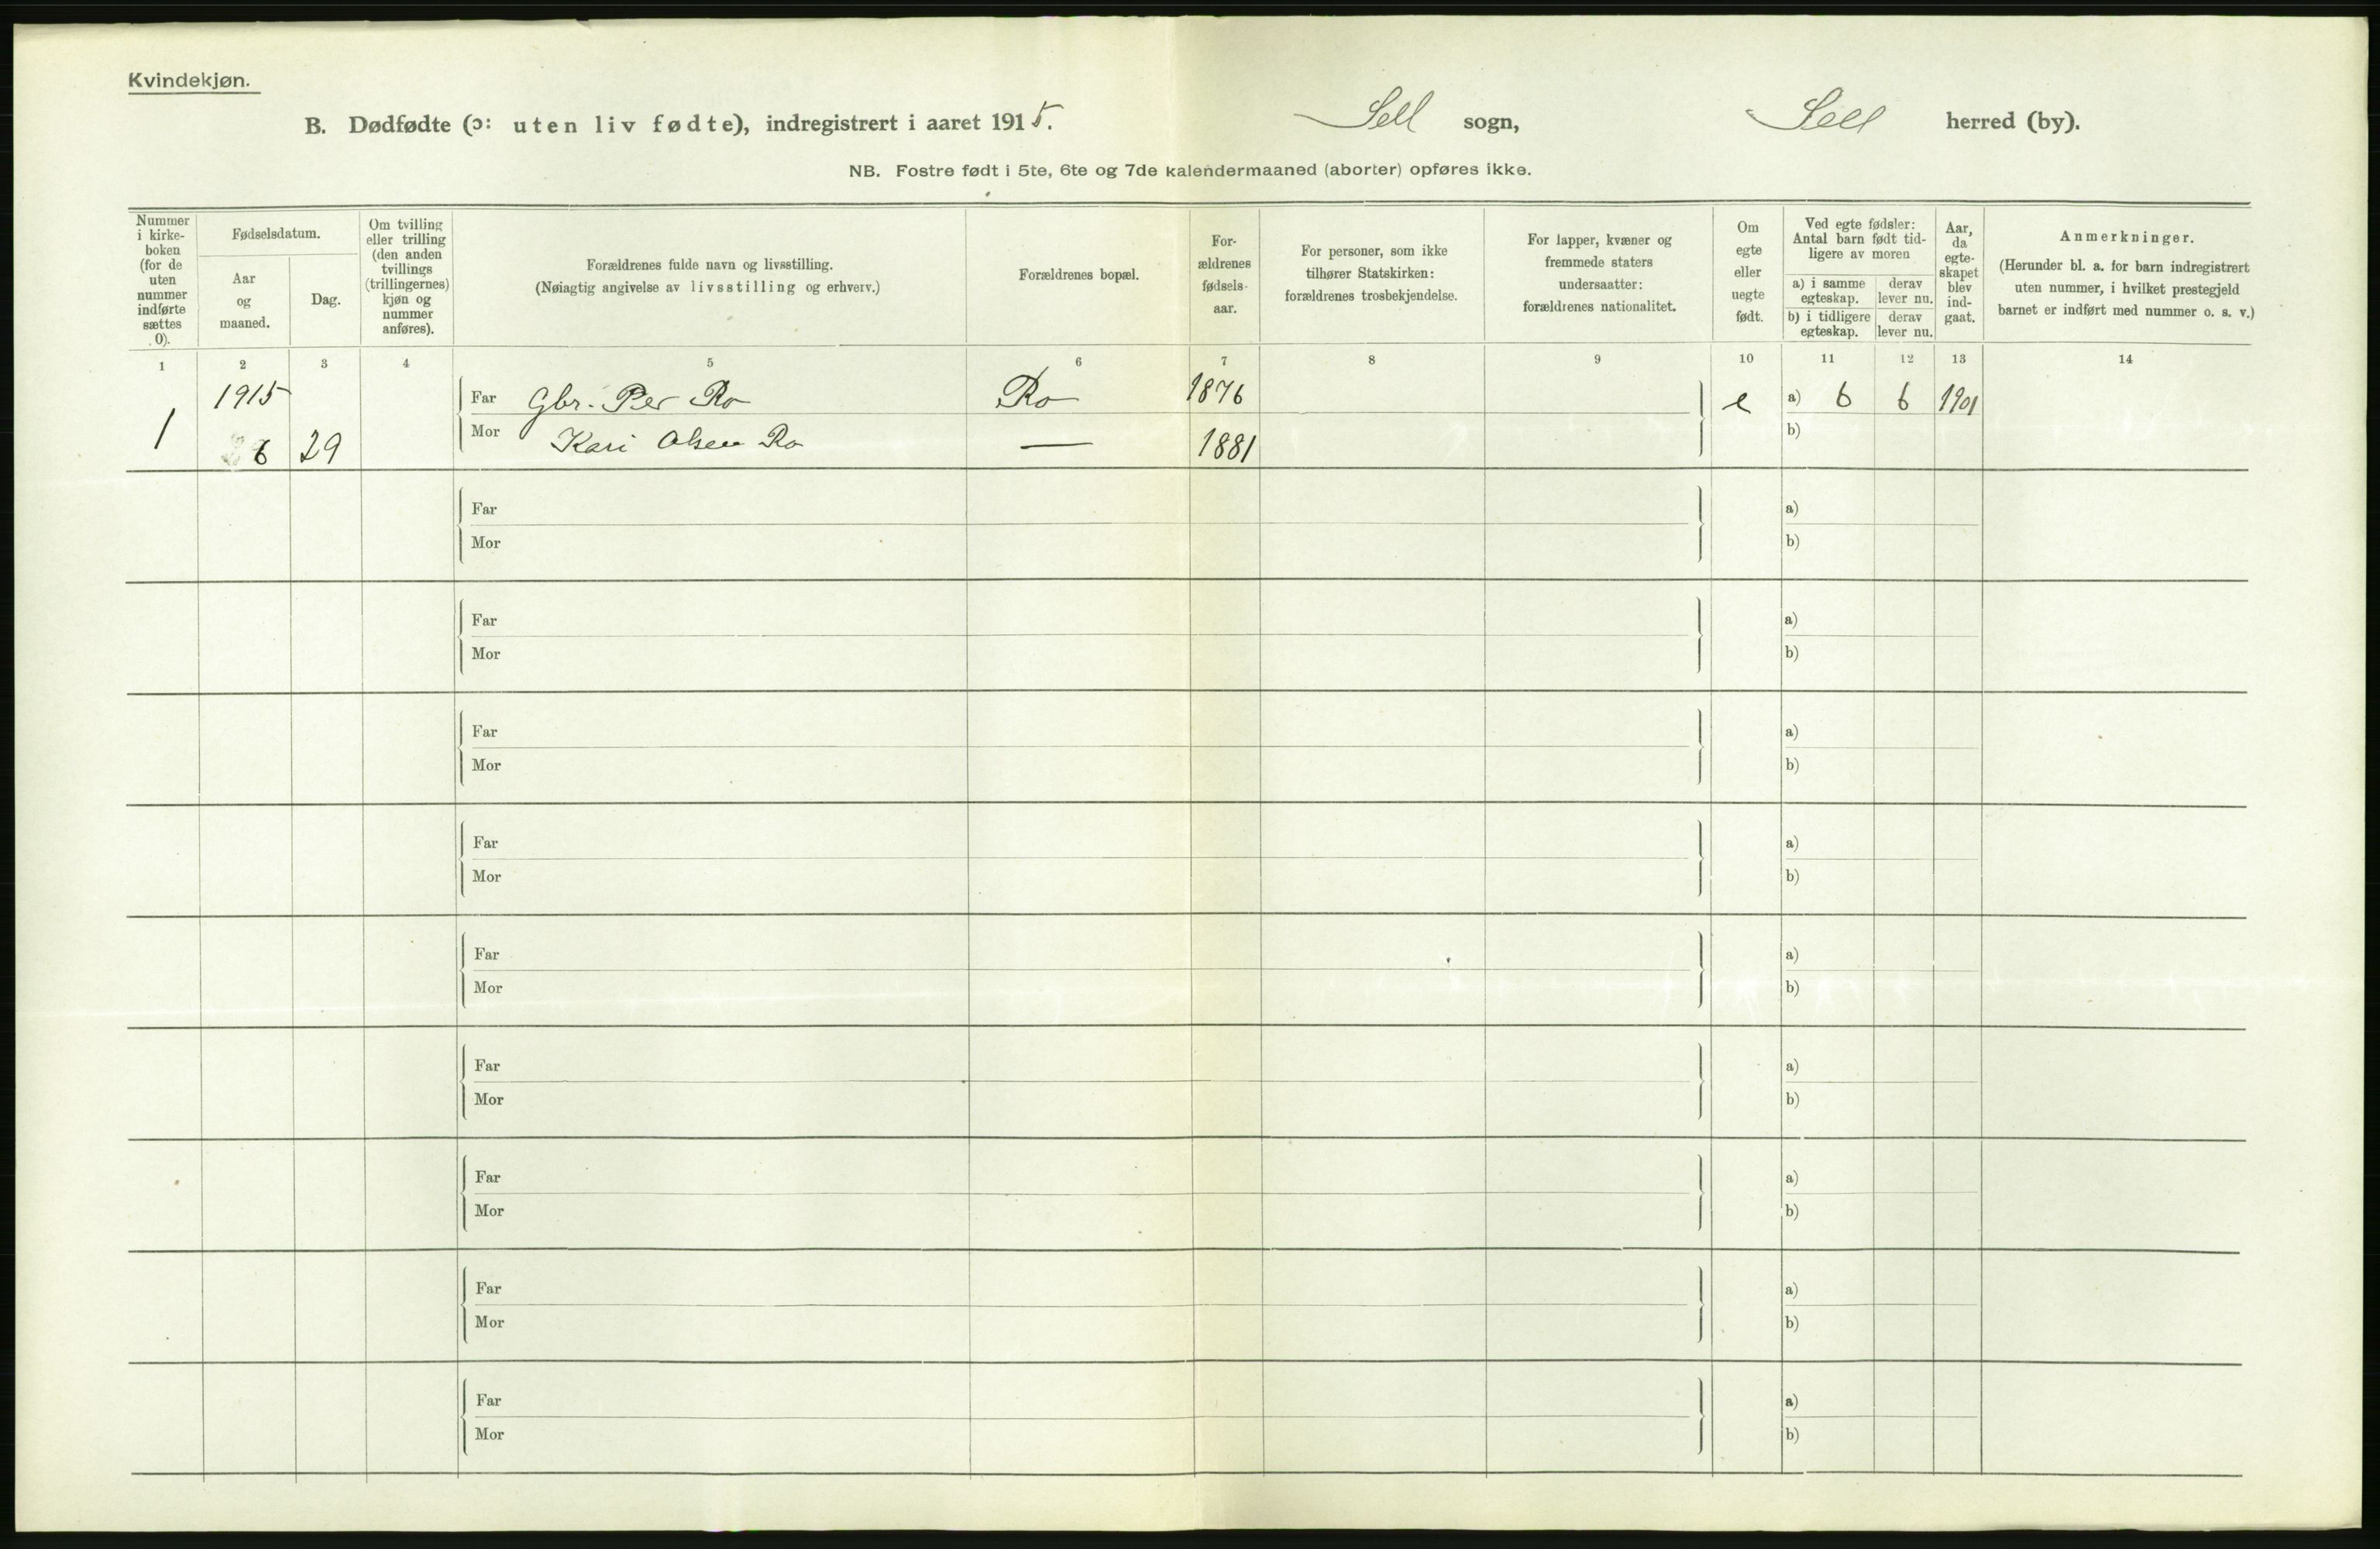 Kvindekjøn.
B. Dødfødte (ɔ: uten liv fødte), indregistrert i aaret 1915. Sell sogn, Sell herred (by).
NB. Fostre født i 5te, 6te og 7de kalendermaaned (aborter) opføres ikke.
Nummer i kirke-boken (for de uten nummer indførte sættes 0).
Fødselsdatum.
Aar og maaned.
Dag.
Om tvilling eller trilling (den anden tvillings (trillingernes) kjøn og nummer anføres).
Forældrenes fulde navn og livsstilling.
(Nøiagtig angivelse av livsstilling og erhverv.)
Forældrenes bopæl.
For-ældrenes fødsels-aar.
For personer, som ikke tilhører Statskirken: forældrenes trosbekjendelse.
For lapper, kvæner og fremmede staters undersaatter: forældrenes nationalitet.
Om egte eller uegte født.
Ved egte fødsler: Antal barn født tid-ligere av moren
a) i samme egteskap.
derav lever nu.
b) i tidligere egteskap.
derav lever nu.
Aar, da egte-skapet blev ind-gaat.
Anmerkninger.
(Herunder bl. a. for barn indregistrert uten nummer, i hvilket prestegjeld barnet er indført med nummer o. s. v.)
1 2 3 4 5 6 7 8 9 10 11 12 13 14
1915 Far Gbr. Per Ro Ro 1876 e a) 6 6 1901
1 6 29 Mor Kari Olsen Ro — 1881 b)
Far a)
Mor b)
Far a)
Mor b)
Far a)
Mor b)
Far a)
Mor b)
Far a)
Mor b)
Far a)
Mor b)
Far a)
Mor b)
Far a)
Mor b)
Far a)
Mor b)